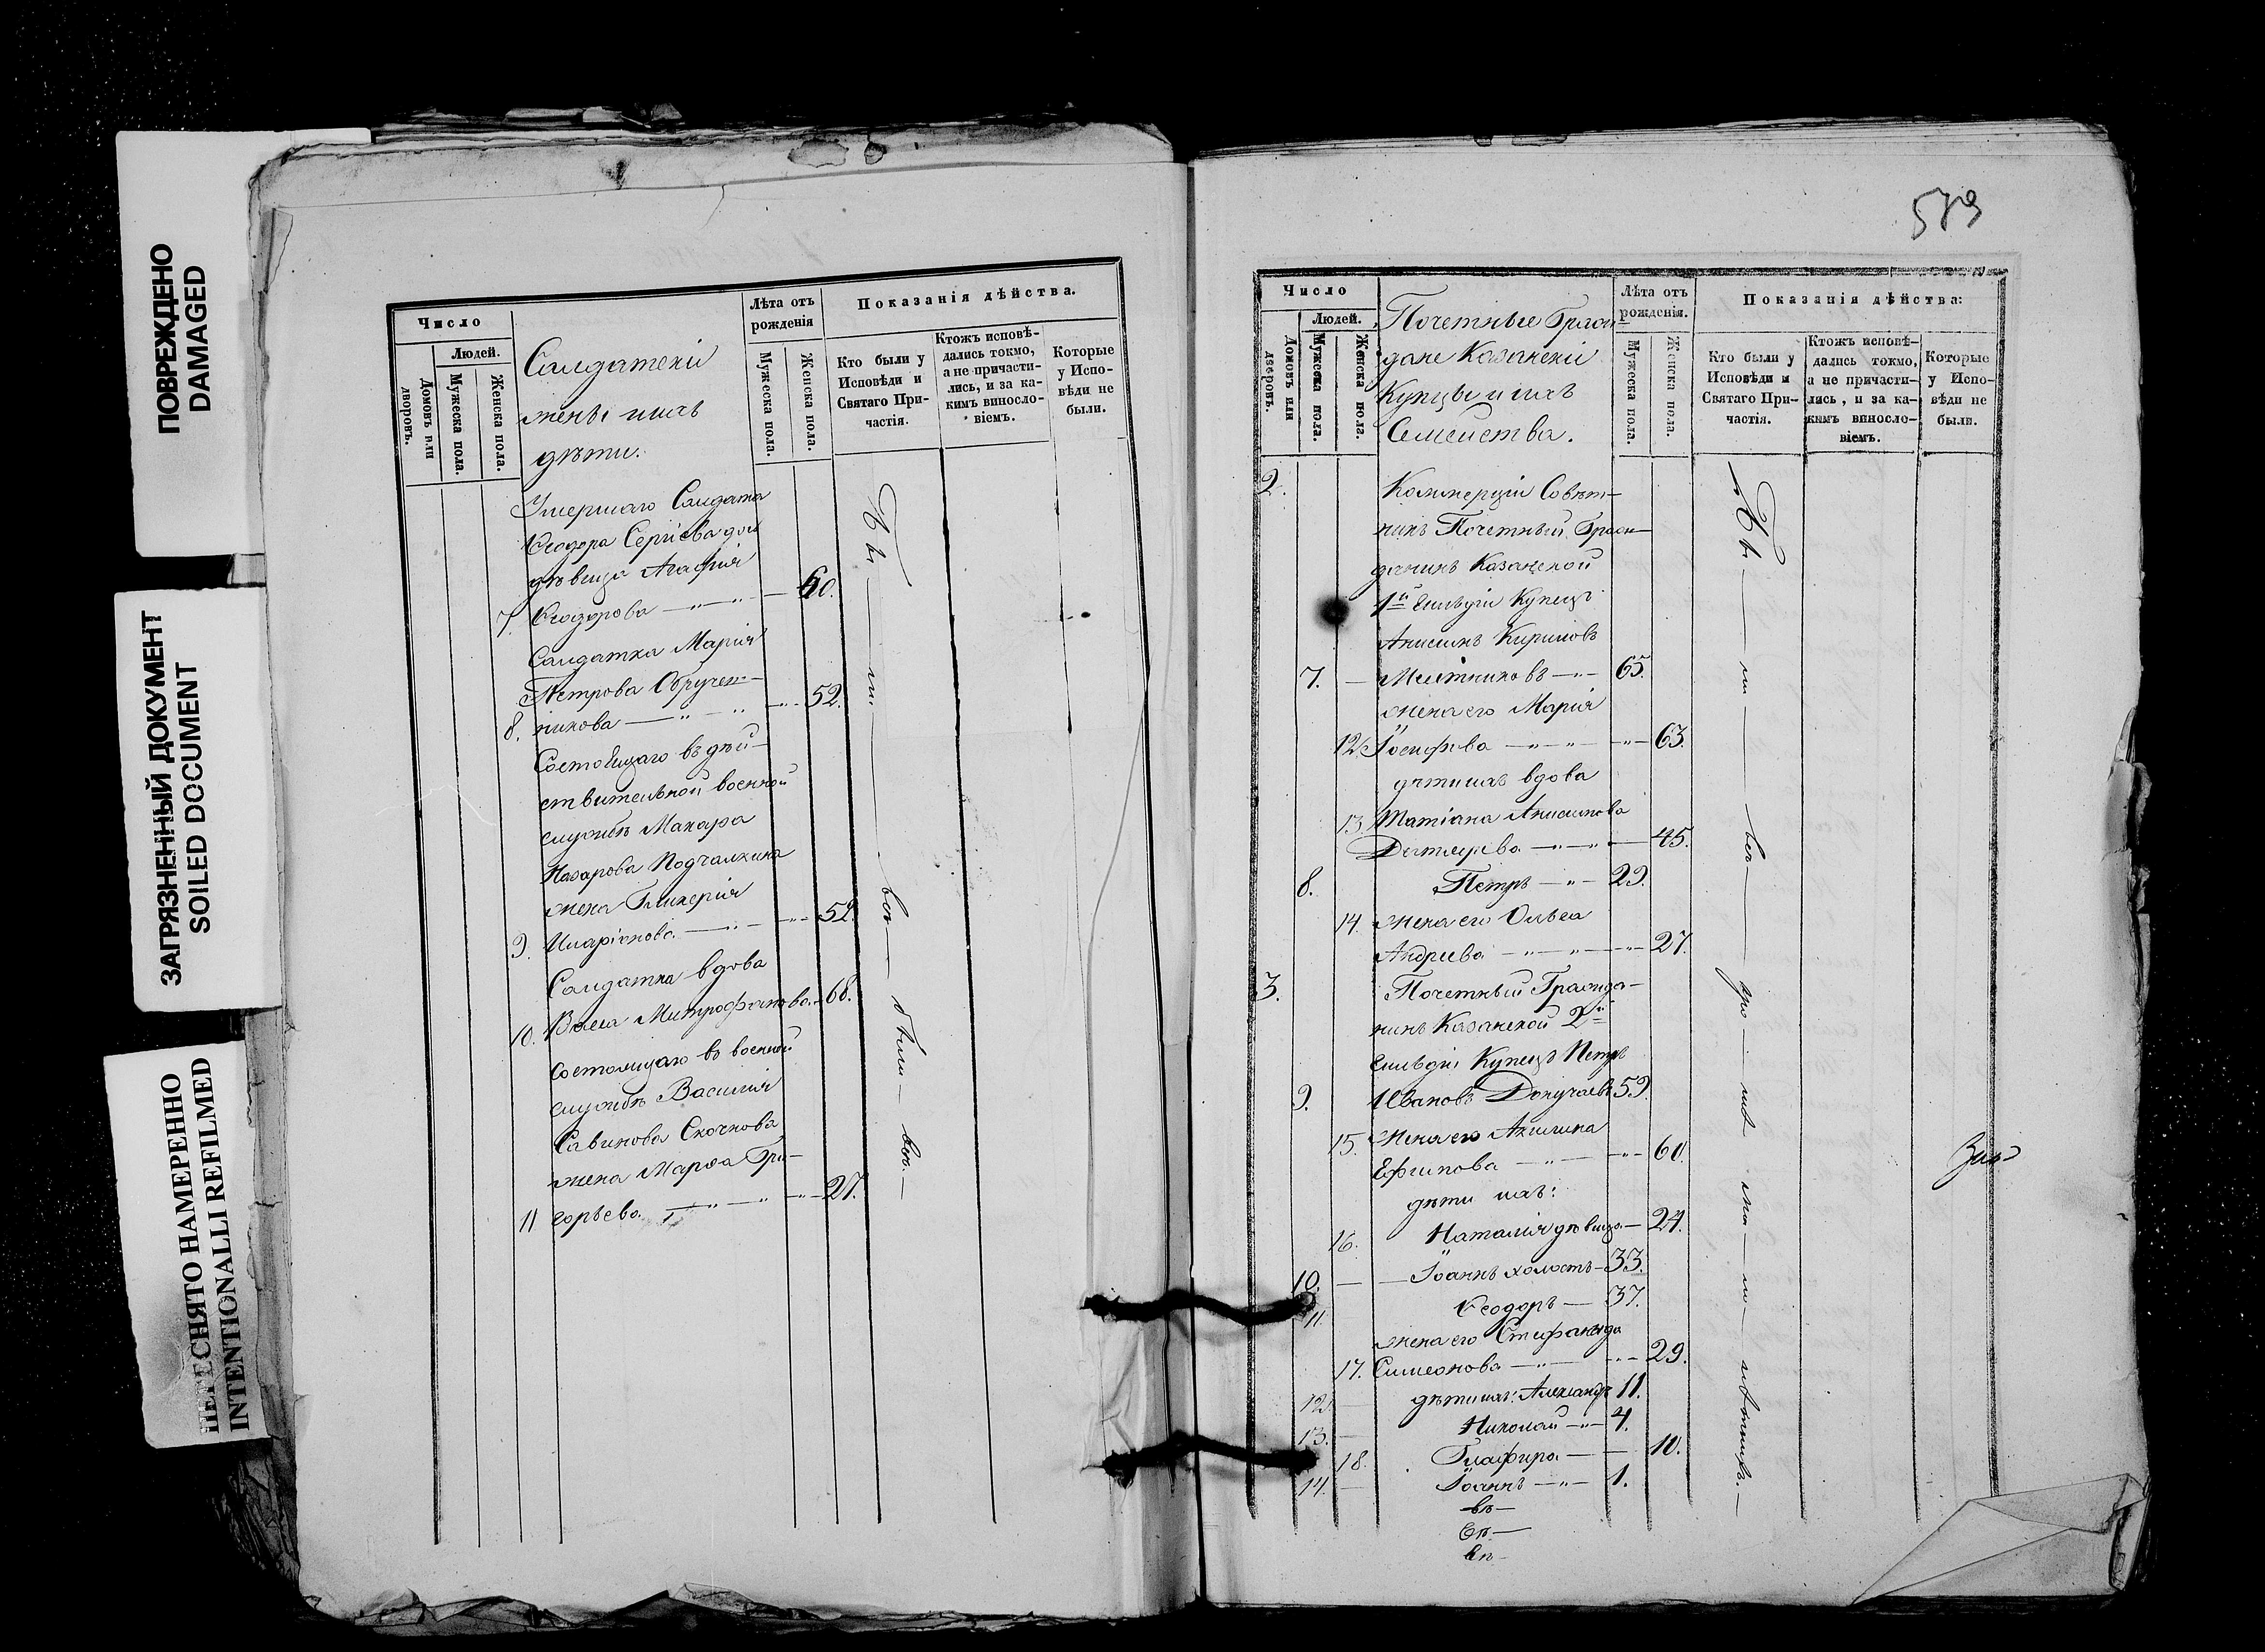 ПОВРЕЖДЕНО
DAMAGED
ЗАГРЯЗНЕННЫЙ ДОКУМЕНТ
SOILED DOCUMENT
ПЕРЕСНЯТО НАМЕРЕННО
INTENTIONALLI REFILMED
Число
Людей.
Домовъ или дворовъ.
Мужеска пола.
Женска пола.
Салдатскіи
жены и ихъ
дѣти.
Лѣта отъ рожденія
Мужеска пола.
Женска пола.
Показанія дѣйства.
Кто были у Исповѣди и Святаго Причастія.
Ктожъ исповѣ-
дались токмо,
а не причасти-
лись, и за ка-
кимъ виносло-
віемъ.
Которые
у Испо-
вѣди не
были.
Умершаго Салдата
Ѳеодора Сергіева дочь
дѣвица Агафія
7. Ѳеодорова 60.
Салдатка Марія
Петрова Обруч
8. никова 52.
Состоящаго въ дѣй-
ствительной военной
службѣ Макара
Назарова Подчалкина
жена Гликерія
9. Иларіонова 52.
Салдатка вдова
10. Васса Митрофанова 68.
состоящаго въ военной
службѣ Василія
Савинова Скочкова
жена Марѳа Гри-
11 горьева 27.
были
579
Число
Людей.
Домовъ или дворовъ.
Мужеска пола.
Женска пола.
Почетные Граж-
дане Казанскіи
Купцы и ихъ
Семейства.
Лѣта отъ рожденія.
Мужеска пола.
Женска пола.
Показанія дѣйства:
Кто были у
Исповѣди и
Святаго При-
частія.
Ктожъ исповѣ-
дались токмо,
а не причасти-
лись, и за ка-
кимъ винословіемъ.
Которые
у Испо-
вѣди не
были.
2. Коммерціи Совѣт-
никъ Почетный Граж-
данинъ Казанской
1й Гильдіи Купецъ
Анисимъ Кириловъ
7. Месетниковъ 65.
жена его Марія
12. Іосифова 63.
дѣти ихъ вдова
13. Татіана Анисимова
45.
8. Петръ 29.
14. жена его Ольга
Андреева 27.
3. Почетный Гражда-
нинъ Казанской 2й
Гильдіи Купецъ Петръ
9. Ивановъ Докучаевъ 59.
15. жена его Акилина
Ефимова 60.
дѣти ихъ:
16. Наталія дѣвица 24.
10. Іоаннъ холостъ 33.
11. Ѳеодоръ 37.
жена его Стефанида
17. Симеонова 29.
12. дѣти ихъ: Александръ 11.
13. Николай 4.
18. Глафира 10.
14. Іоаннъ 1.